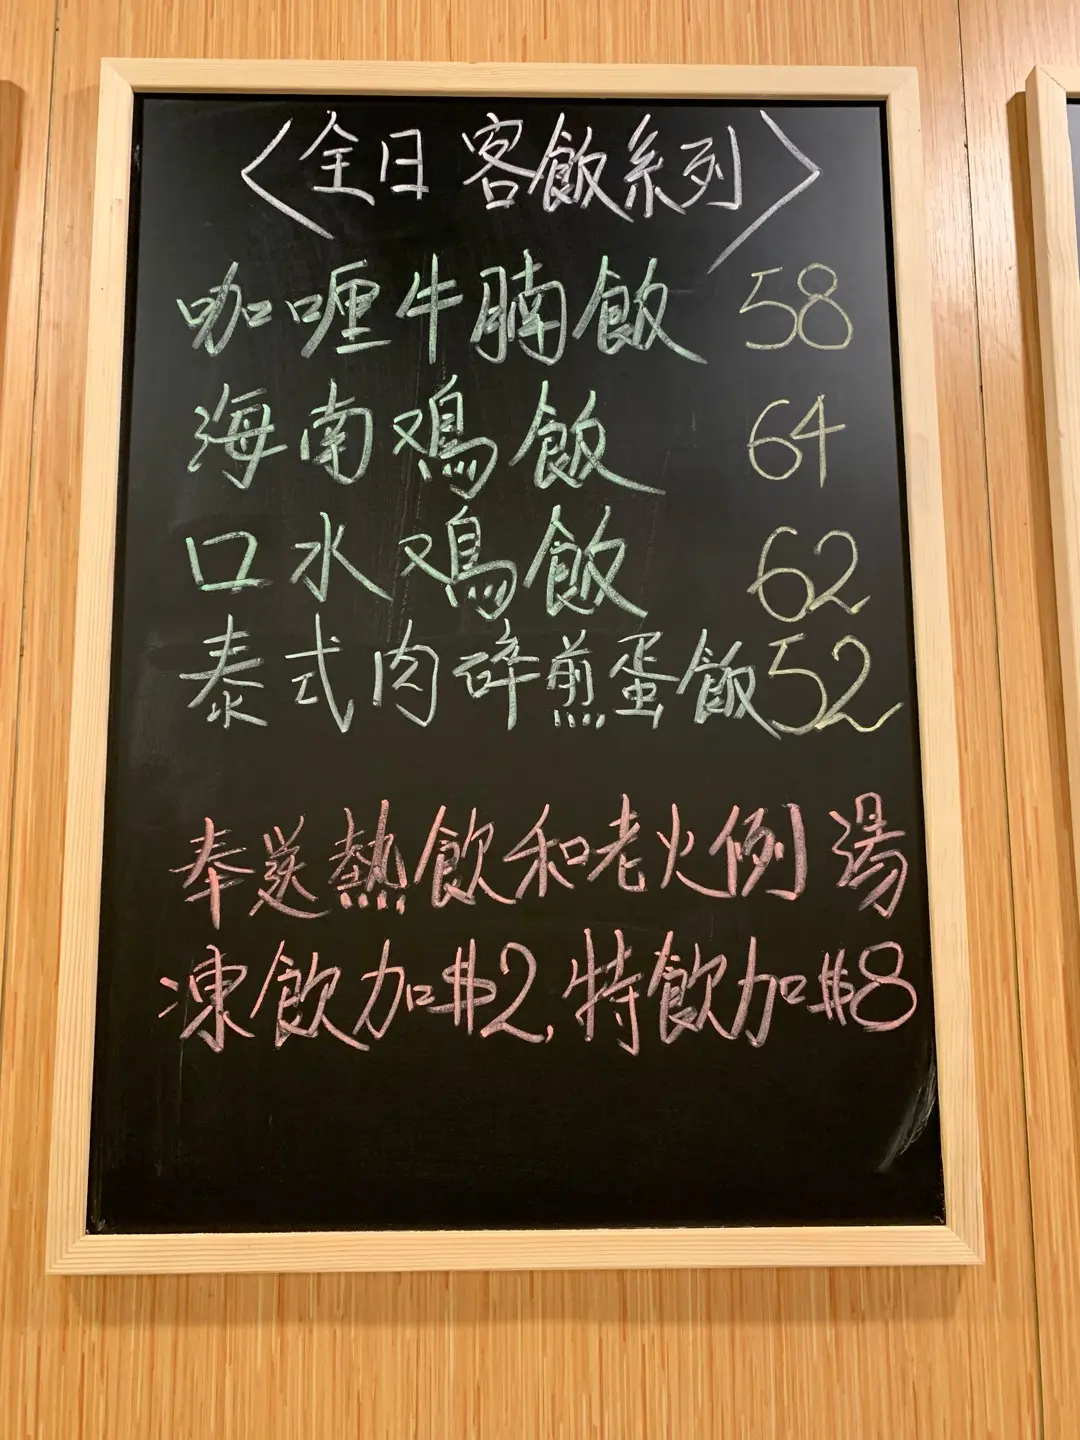 〈全日 客飯系列〉
咖喱牛腩飯 58
海南鳮飯 64
口水鳮飯 62
泰式肉碎煎蛋飯 52
奉送熱飲和老火例湯
凍飲加$2, 特飲加$8